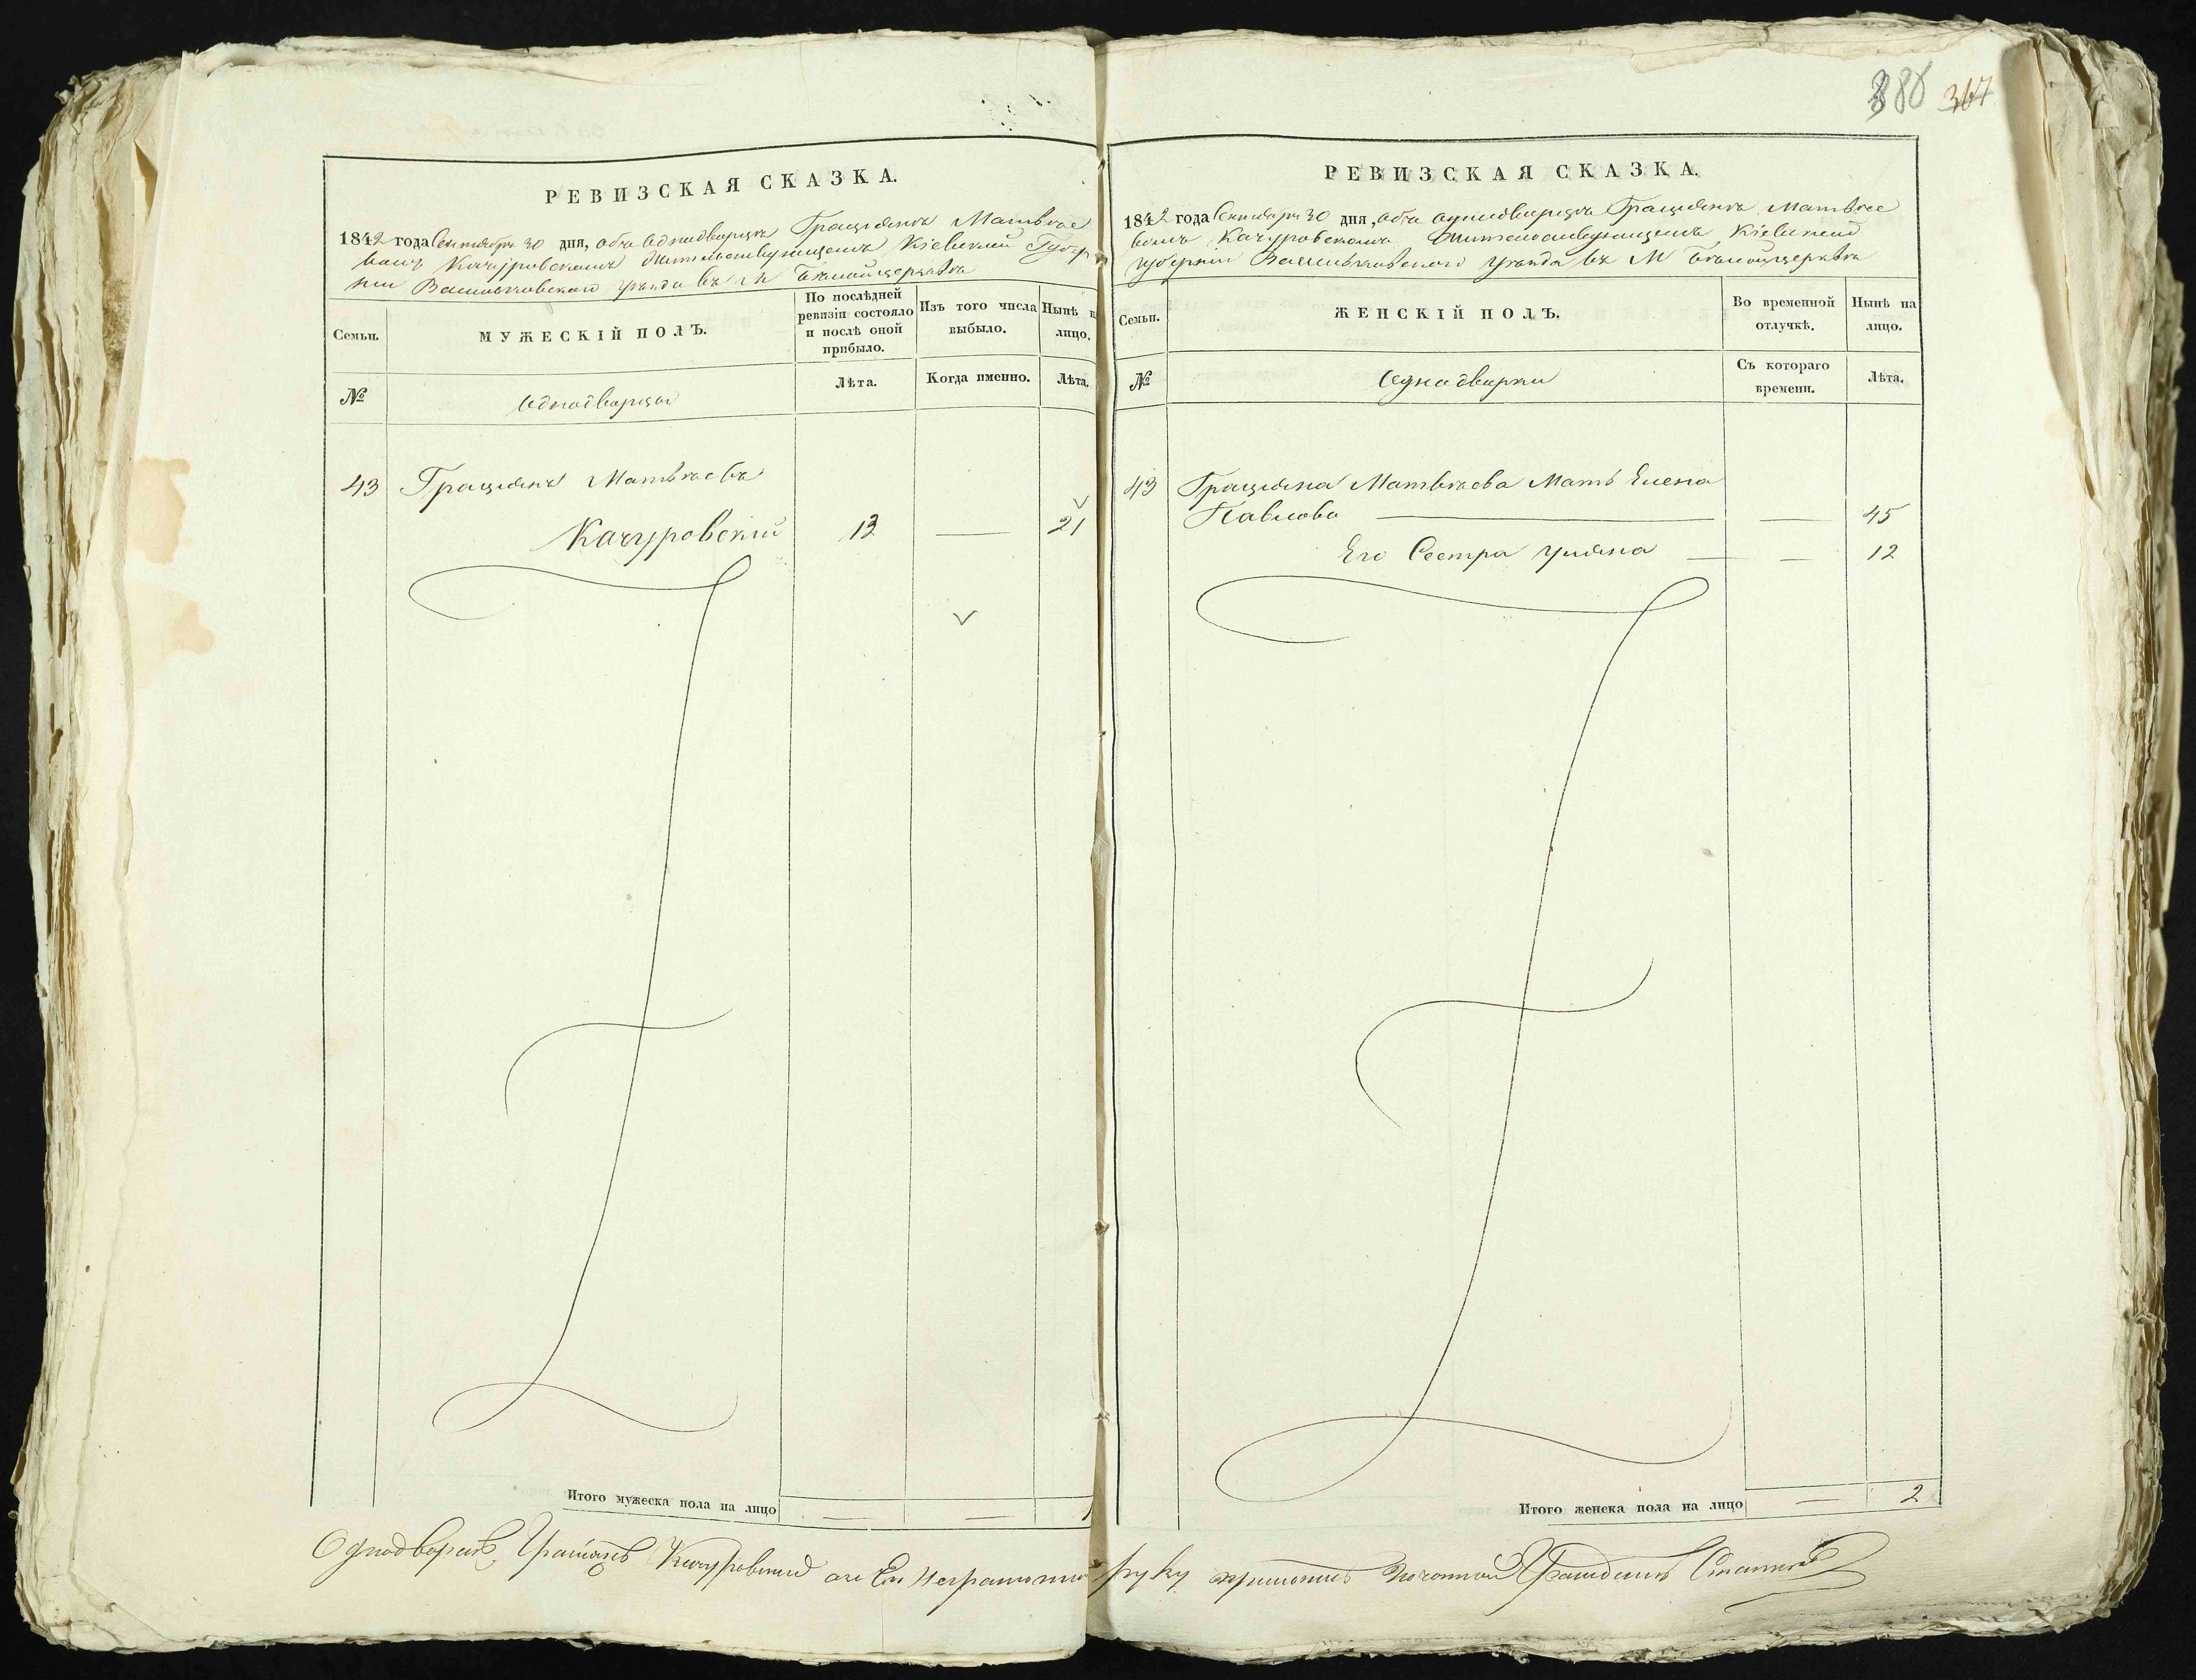 РЕВИЗСКАЯ СКАЗКА.
1842 года Сентября 30 дня, объ Однодворцѣ Граціянѣ Матвѣе
вомъ Качуровскомъ Жительствующемъ Кіевской Губер
ніи Васильковскаго уѣзда въ М Бѣлойцерьквѣ
Семьи.
МУЖЕСКІЙ ПОЛЪ.
По послѣдней ревизіи состояло и послѣ оной прибыло.
Изъ того числа выбыло.
Нынѣ н лицо.
№
Однодворцы
Лѣта.
Когда именно.
Лѣта.
43 Граціянъ Матвѣевъ
Качуровскій 13 — 21
Итого мужеска пола на лицо — — 1
Однодворецъ Граціянъ Качуровскій а за Его Неграмотно
388 367
РЕВИЗСКАЯ СКАЗКА.
1842 года Сентября 30 дня, объ однодворцѣ Граціянѣ Матвѣе
вомъ Качуровскомъ Жительствующемъ Кіевской
губерніи Васильковскаго уѣзда въ М Бѣлойцерьквѣ
Семьи.
ЖЕНСКІЙ ПОЛЪ.
Во временной отлучкѣ.
Нынѣ на лицо.
№
Однодворки
Съ котораго времени.
Лѣта.
43 Граціяна Матвѣева Мать Елена
Павлова — — 45
Его Сестра Уліяна — — 12
Итого женска пола на лицо — 2
руку приложилъ